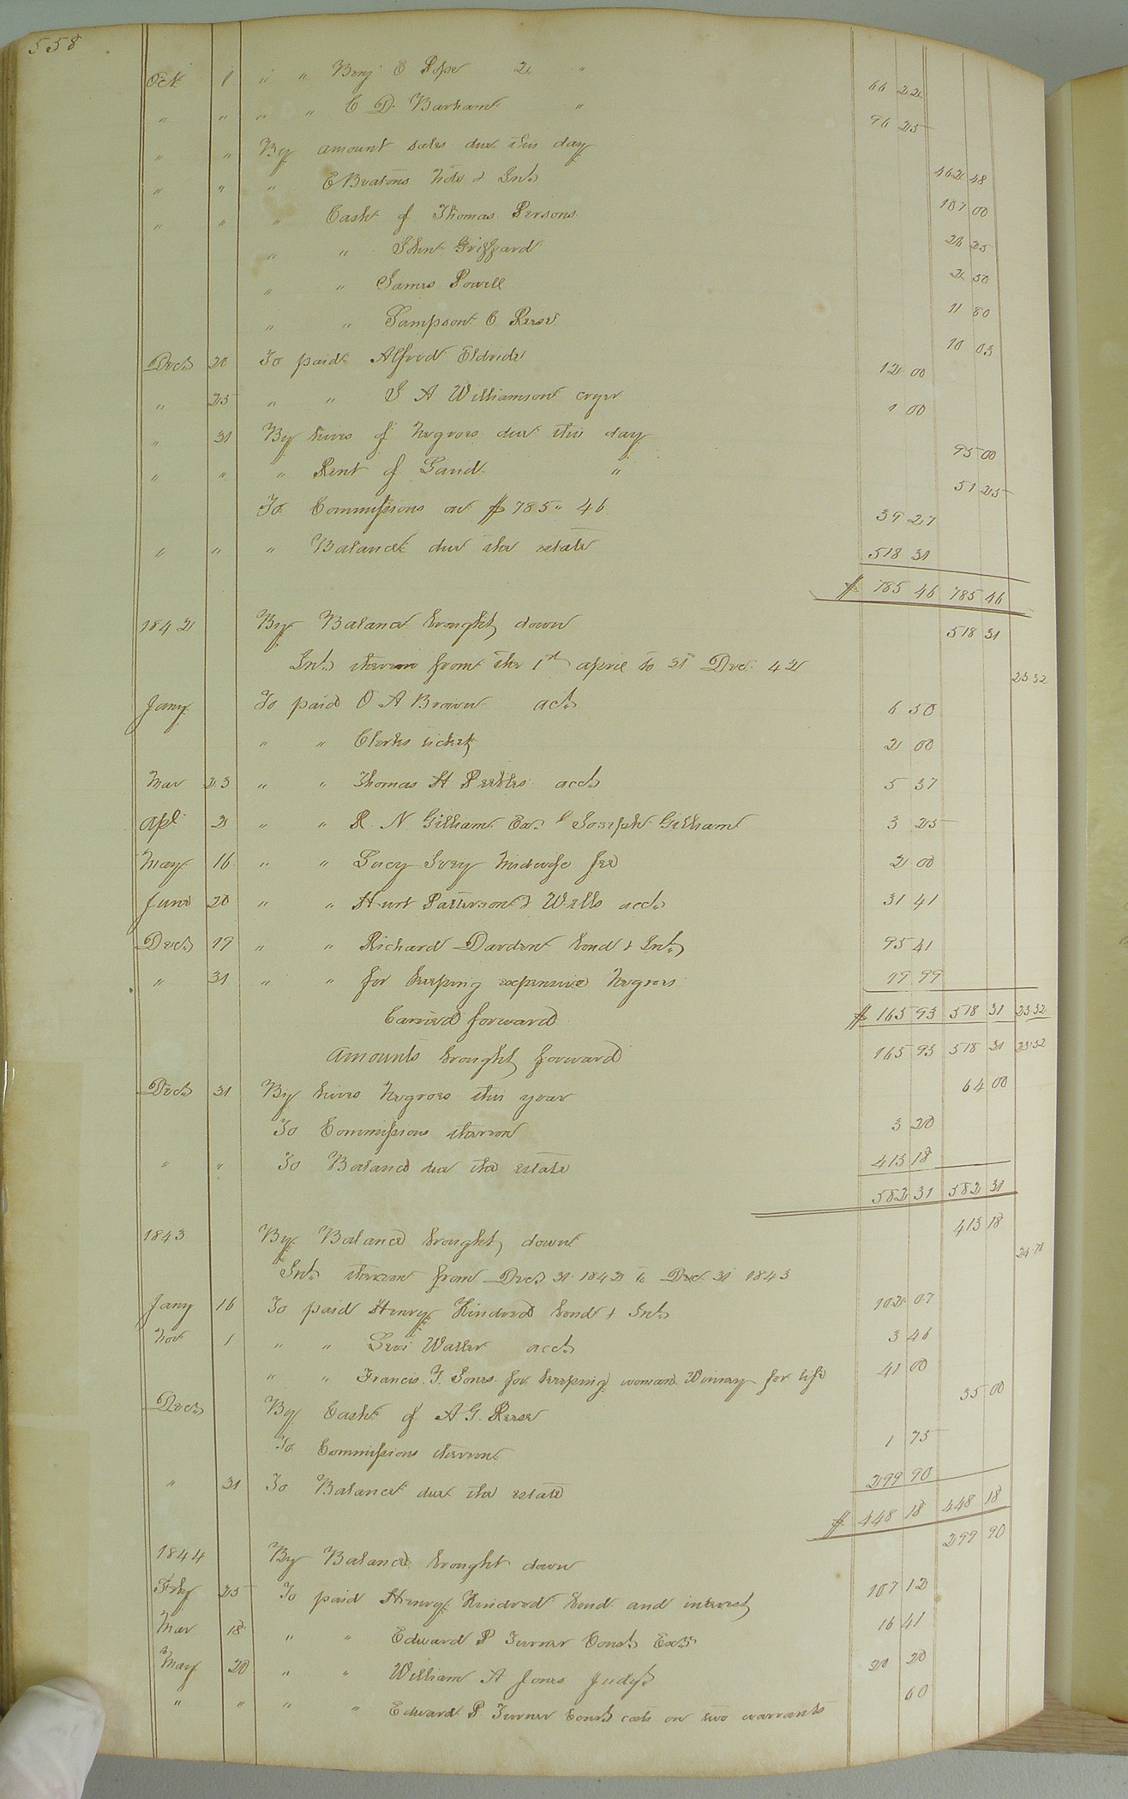 558
Oct 1 " " Benj E Pope 2 " 66 22
" " " " E D. Barham " 96 25
" " By amount sales due this day 462 48
" " " E Beatons Note & Int 107 00
" " " Cash of Thomas Persons 26 25
" " John Grizzard 2 50
" " James Powell 11 80
" " Sampson C Reese 10 03
Dec 20 To paid Alfred Eldride 12 00
" 25 " " J A Williamson cryer 1 00
" 31 By hires of Negroes due this day 95 00
" " " Rent of Land " 51 25
To Commissions on $785 " 46 39 27
" " " Balance due the estate 518 31
$ 785 46 785 46
1842 By Balance brought down 518 31
Int thereon from the 1st april to 31 Dec. 42 23 32
Jany To paid O A Brown act 6 50
" " Clerks ticket 2 00
Mar 23 " " Thomas H Peebles acct 5 37
Apl 2 " " R. N Gilliam Exr of Joseph Gilliam 3 25
May 16 " " Lucy Ivey Midwife fee 2 00
June 20 " " Hurt Patterson & Wells acct 31 41
Dec 19 " " Richard Darden bond & Int 95 41
" 31 " " for keeping expensive Negroes 19 99
Carried forward $ 165 93 518 31 23 32
Amounts brought forward 165 93 518 31 23 32
Dec 31 By hires Negroes this year 64 00
To Commissions thereon 3 20
" " To Balance due the estate 413 18
582 31 582 31
1843 By Balance brought down 413 18
Int thereon from Dec 31 1842 to Dec 31 1843 24 78
Jany 16 To paid Henry Kindred bond & Int 102 07
Nov 1 " " Levi Waller acct 3 46
" " Francis T. Jones for keeping woman Winney for life 41 00
Dec By Cash of A G. Reese 35 00
To Commissions thereon 1 75
" 31 To Balance due the estate 299 90
$ 448 18 448 18
1844 By Balance brought down 299 90
Feby 25 To paid Henry Kindred bond and interest 107 12
Mar 18 " " Edward P Turner Const Exts 16 41
May 20 " " William A Jones Judgt 20 20
" " " " Edward P Turner Const costs on two warrants 60